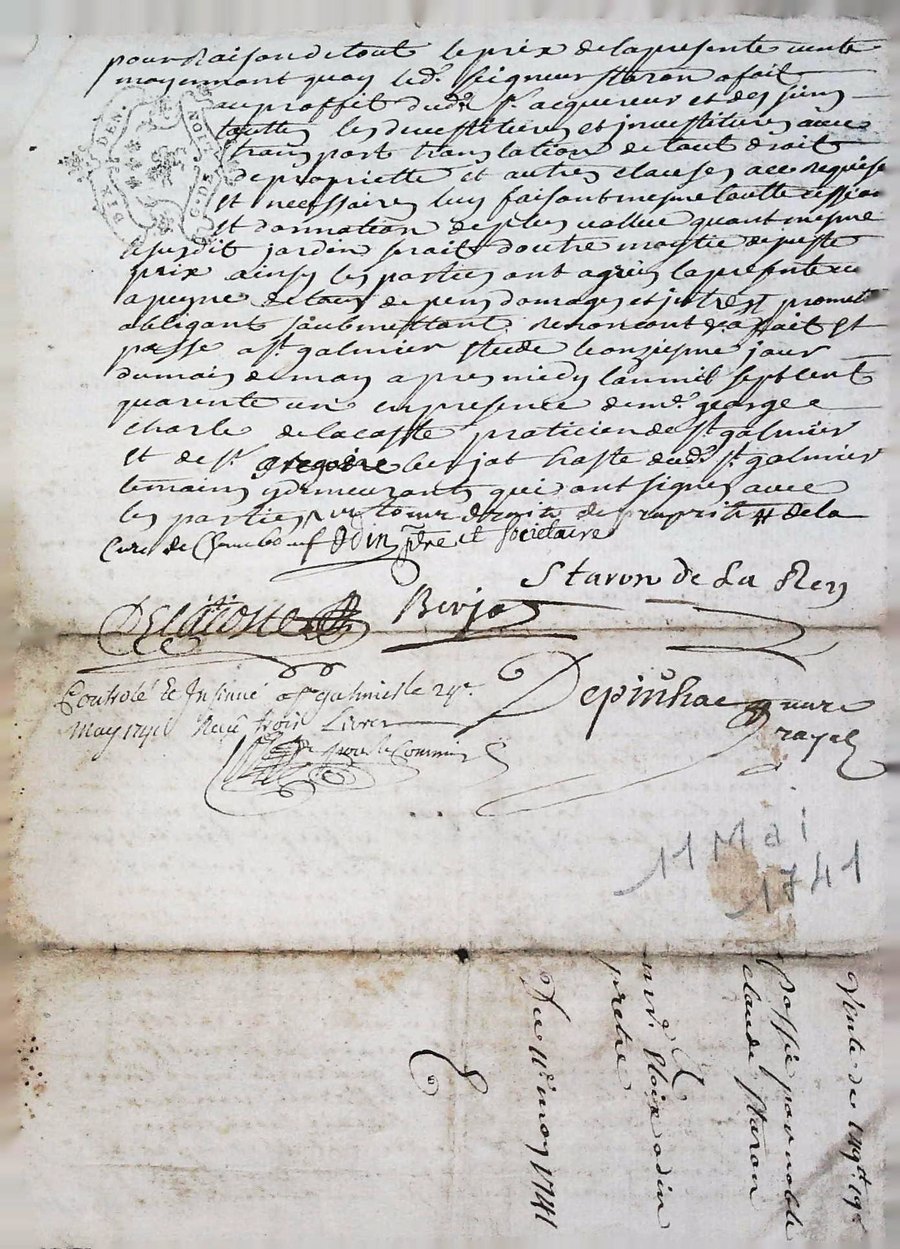 pour Raison de tout le prix de la presente vente
moyennant quoy led. Seigneur staron a fait
au proffit dud. Sr. acquereur et des siens
touttes les devestitures et investitures avec
transport translation de tout droit
de proprietté et autres clauses a ce requise
et necessaires luy faisant mesme toutte cession
et donnation de plus vallue quant mesme
le susdit jardin serait d'outre moytie de juste
prix ainsy les parties ont agréés la presente
a peyne de tous depens domages et intrest promet
obligant soubmettant renoncant &a fait et
passé a st. galmier le onziesme jour
du mois de may apres midy l'an mil sept cent
quarente un en presence de me. george
charle de lacoste praticien de st galmier
et de sr. gregoire berjat hoste dud. st. galmier
temoins y demeurants qui ont signés avec
les parties de la
Cure de Chambœuf Odin ptre et Societaire
Staron de La Rey
Delacoste Berjat
Depinhac
Controlé Et Insinué a st galmier le 24e.
May 1741 Receu trois Livres
pour le Commis
notre
royal
11 Mai
1741
DEN.
DIX
G. DE
LION
Vente de
Passée par noble
claude staron
a
mre. odin
pretre
Du 11e may 1741